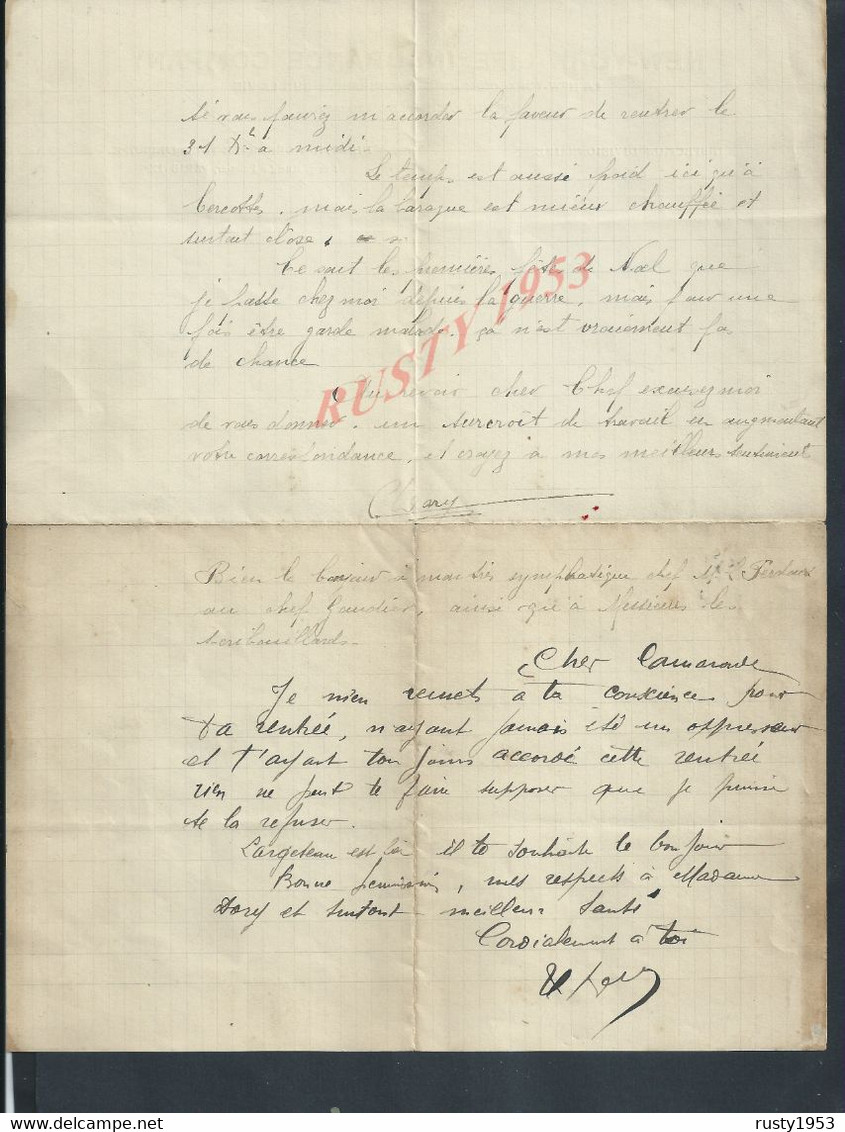 si vous pouviez m'accorder la faveur de rentrer le
31 Xbre à midi.
Le temps est aussi froid ici qu'à
Cercottes, mais la baraque est mieux chauffée et
surtout close,
Ce sont les premières fêtes de Noël que
je passe chez moi depuis la guerre, mais pour une
fois être garde malade, ça n'est vraiement pas
de chance
Au revoir cher Chef excusez moi
de vous donner un surcroît de travail en augmentant
votre correspondance, et croyez à mes meilleurs sentiments
Dary
Bien le bonjour à mon très symphatique chef
au chef Gaudier, ainsi qu'à Messieurs les
scribouillards.
Cher Camarade
Je m'en remets à ta conscience pour
ta rentrée, n'ayant jamais été un oppresseur
et t'ayant toujours accordé cette rentrée
rien ne peut te faire supposer que je puisse
te la refuser.
Largeteau est là il te souhaite le bonjour
Bonne permission, mes respects à Madame
Dary et surtout meilleur santé
Cordialement à toi
RUSTY 1953
delcampe.net
rusty1953